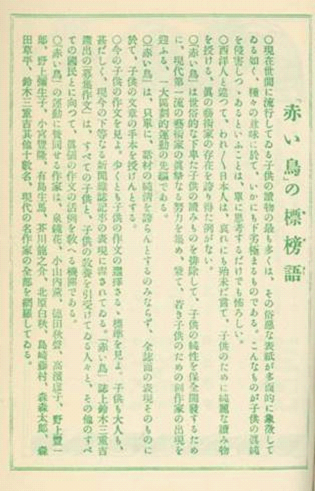 「赤い鳥」の標榜語
〇現在世間に流行してゐる子供の讀物の最も多くは、その俗惡な表紙が多面的に象徴して
ゐる如く、種々の意味に於て、いかにも下劣極まるものである。こんなものが子供の眞純
を侵害しつゝあるといふことは、單に思考するだけでも怖ろしい。
〇西洋人と違つて、われ〳〵日本人は、哀れにも殆未だ嘗て、子供のために純麗な讀み物
を授ける、眞の藝術家の存在を誇り得た例がない。
〇「赤い鳥」は世俗的な下卑た子供の讀みものを排除して、子供の純性を保全開發するため
に、現代第一流の藝術家の眞摯なる努力を集め、兼て、若き子供のための創作家の出現を
迎ふる、一大區劃的運動の先驅である。
〇「赤い鳥」は、只單に、話材の純清を誇らんとするのみならず、全誌面の表現そのものに
於て、子供の文章の手本を授けんとする。
〇今の子供の作文を見よ。少くとも子供の作文の選擇さるゝ標準を見よ。子供も大人も、
甚だしく、現今の下等なる新聞雜誌記事の表現に毒されてゐる。「赤い鳥」誌上鈴木三重吉
選出の「募集作文」は、すべての子供と、子供の敎養を引受けてゐる人々と、その他のすべ
ての國民とに向つて、眞個の作文の活例を敎へる機關である。
〇「赤い鳥」の運動に賛同せる作家は、泉鏡花、小山內薰、德田秋聲、高濱虛子、野上豐一
郎、野上彌生子、小宮豐隆、有島生馬、芥川龍之介、北原白秋、島崎藤村、森森太郎、森
田草平、鈴木三重吉其他十數名、現代の名作家の全部を網羅してゐる。